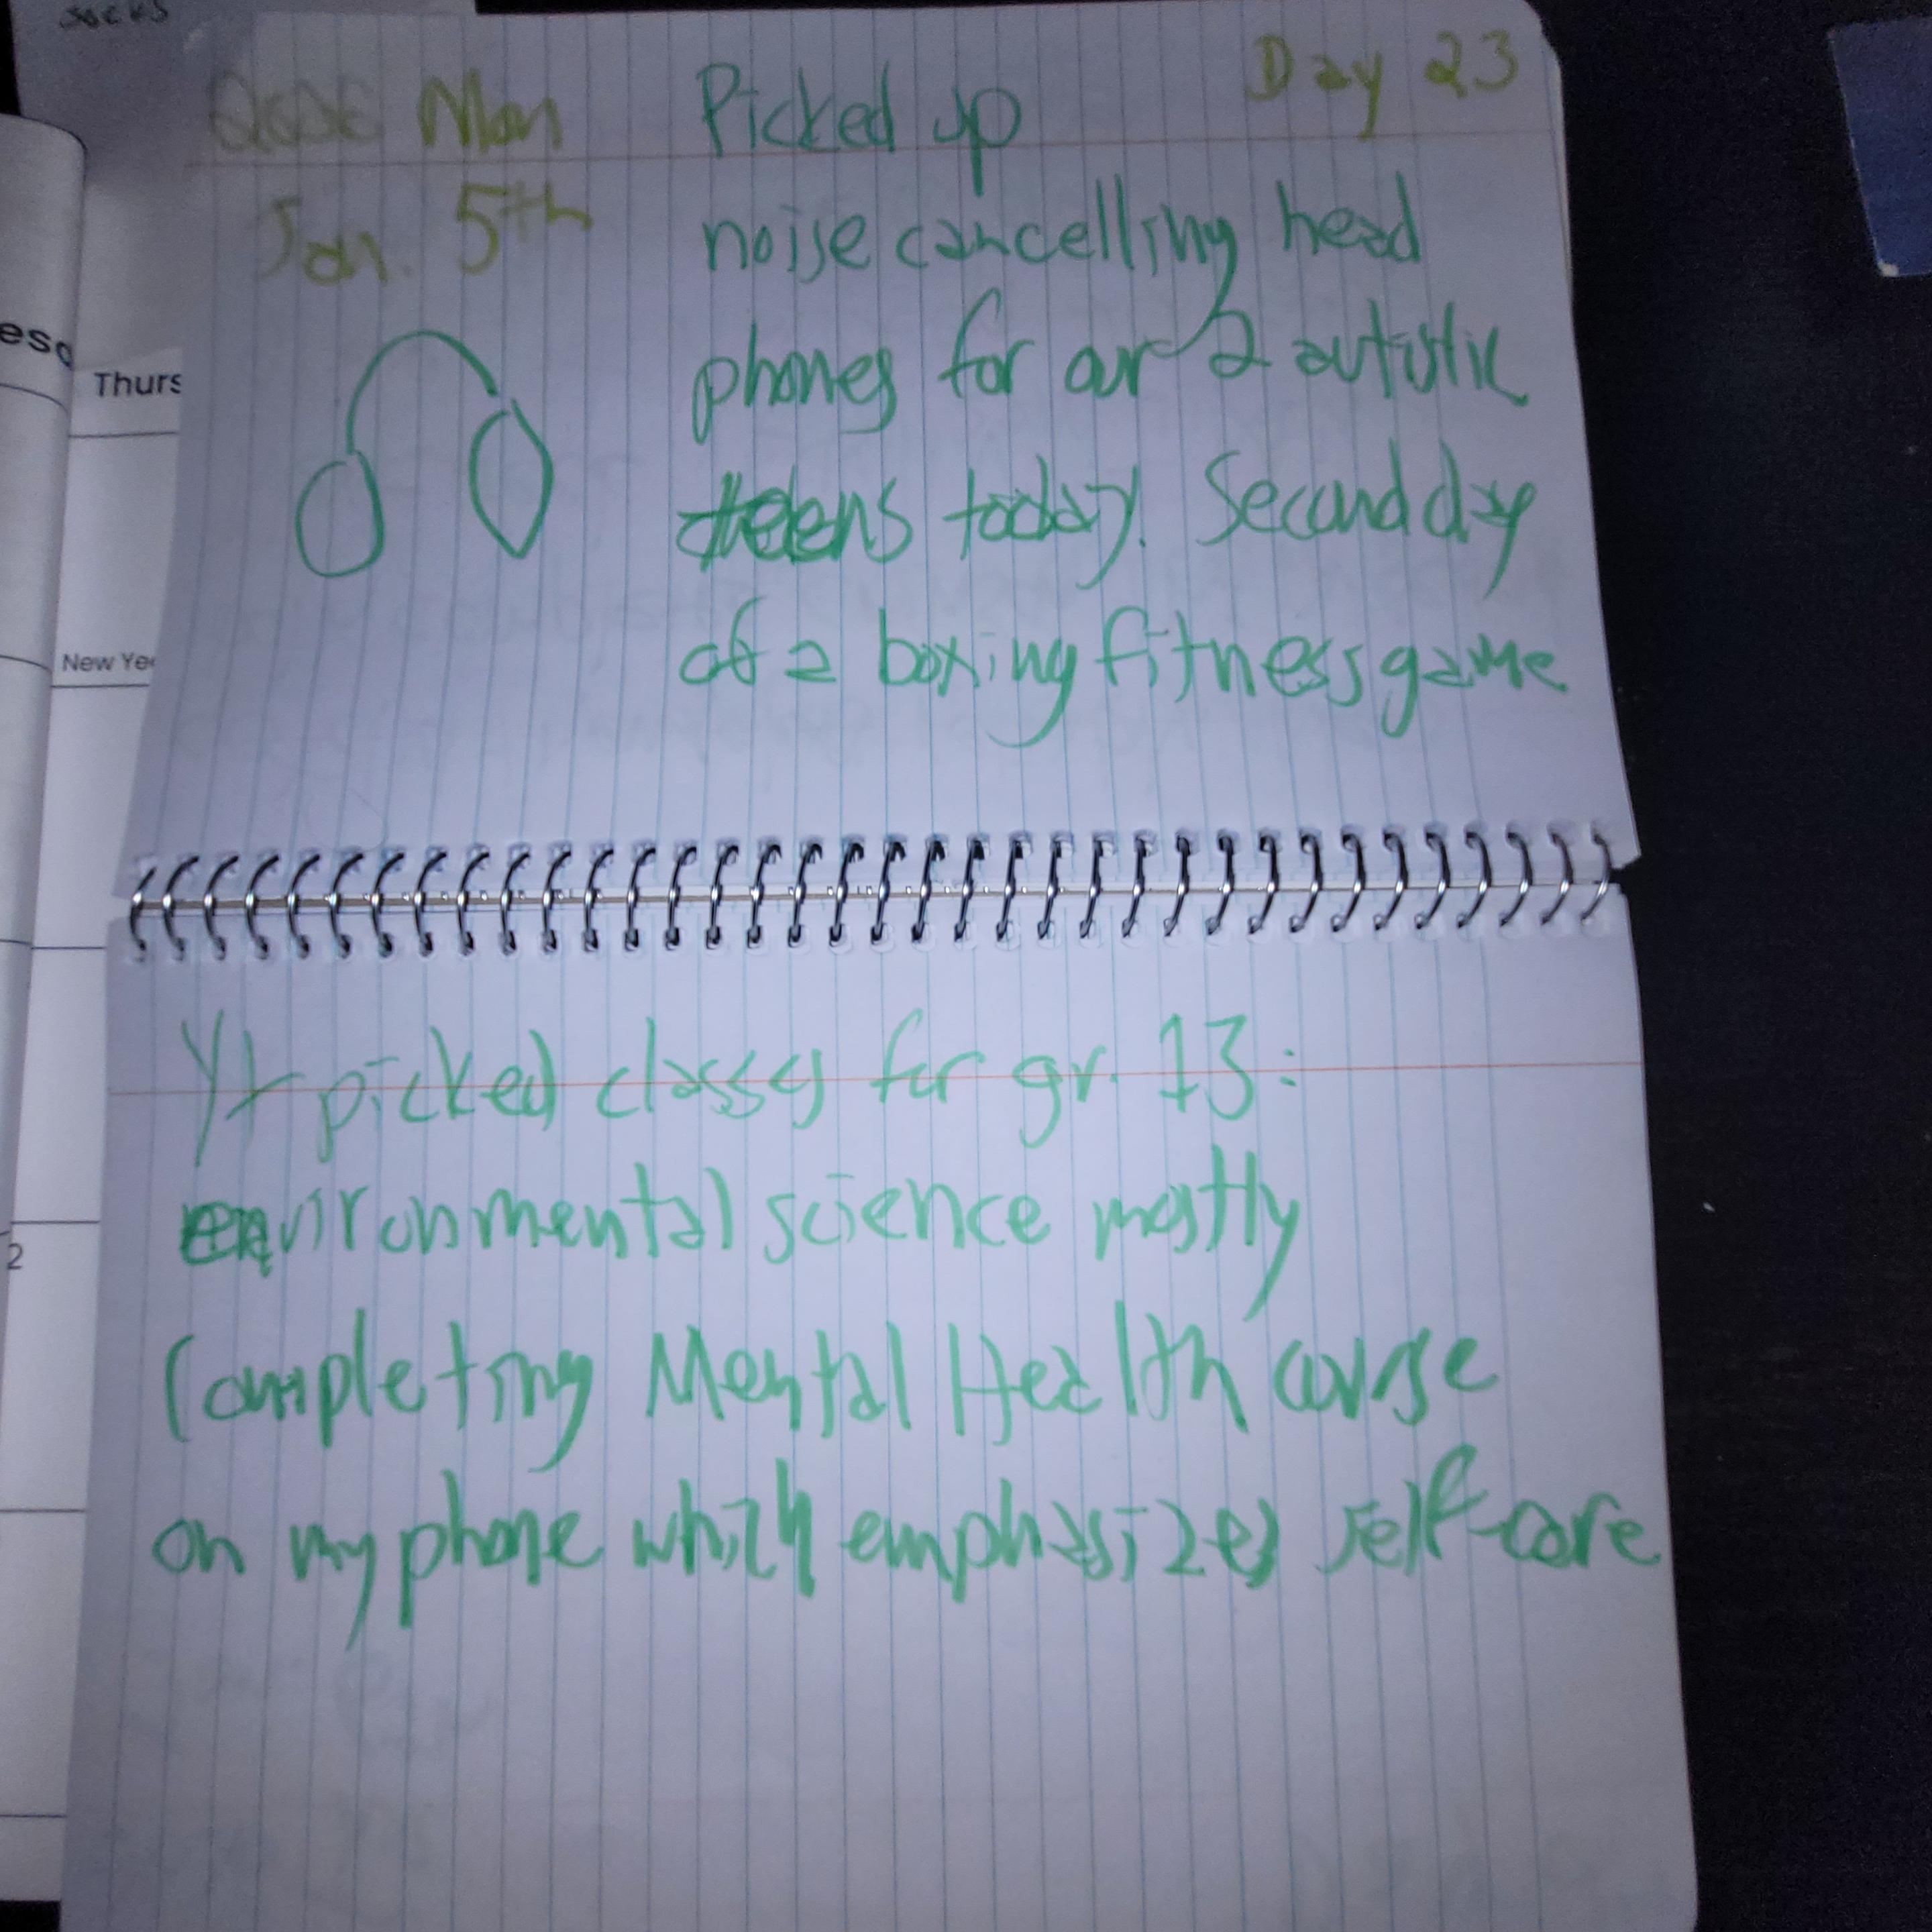 socks
2026 Mon Picked up Day 23
Jan. 5th noise cancelling head
phones for our 2 autistic
teens today. Second day
of a boxing fitness game
Thurs
New Ye
2
Yt picked classes for gr. 13:
environmental science mostly
Completing Mental Health course
on my phone which emphasizes self-care